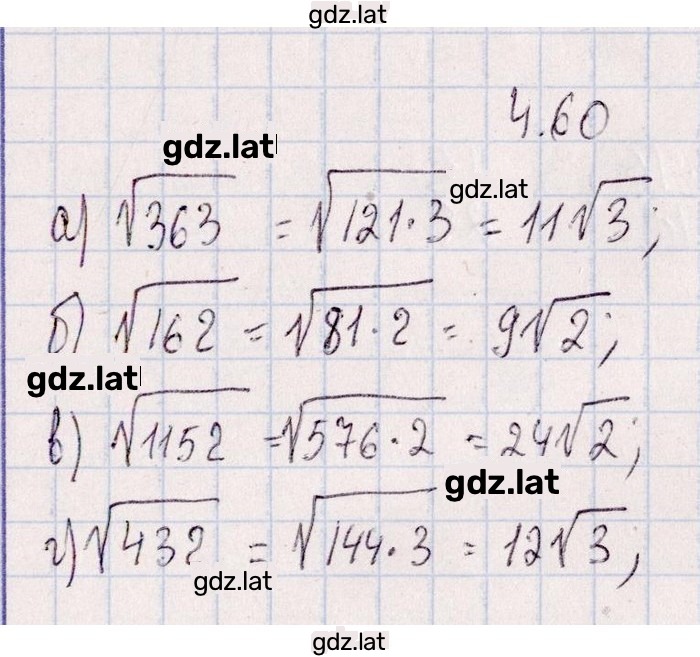 gdz.lat
4.60
gdz.lat
gdz.lat
а) √363 = √121·3 = 11√3;
б) √162 = √81·2 = 9√2;
gdz.lat
в) √1152 = √576·2 = 24√2;
gdz.lat
г) √432 = √144·3 = 12√3;
gdz.lat
gdz.lat